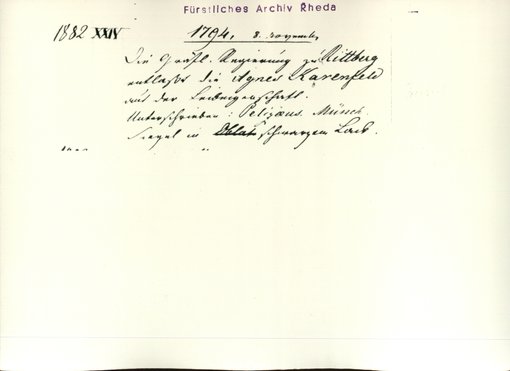 Fürstliches Archiv Rheda
1882 XXIV 1794, 8. November
Die Gräfl. Regierung zu Rittberg
entlaßt die Agnes Karenfeld
aus der Leibeigenschaft.
Unterschrieben: Pelizaeus. Münch.
Siegel in schwarzem Lack.